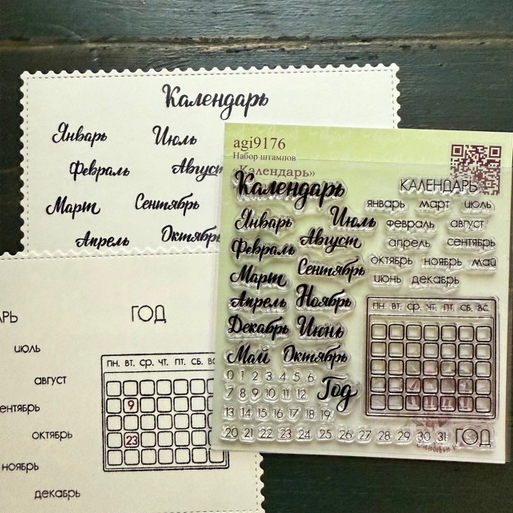 Календарь
Январь Июль
Февраль Август
Март Сентябрь
Апрель Октябрь
ГОД
июль
август
октябрь
ноябрь
декабрь
ПН. ВТ. СР. ЧТ. ПТ. СБ.
9
23
agi9176
Набор штампов
Календарь»
Календарь
КАЛЕНДАРЬ
Январь Июль
Февраль Август
Март Сентябрь
Апрель Ноябрь
Декабрь Июнь
Май Октябрь
Год
январь март июль
февраль август
апрель сентябрь
октябрь ноябрь май
июнь декабрь
ПН. ВТ. СР. ЧТ. ПТ. СБ. ВС.
0 1 2 3 4 5 6
7 8 9 10 11 12
13 14 15 16 17 18 19
20 21 22 23 24 25 26 27 28 29 30 31 ГОД